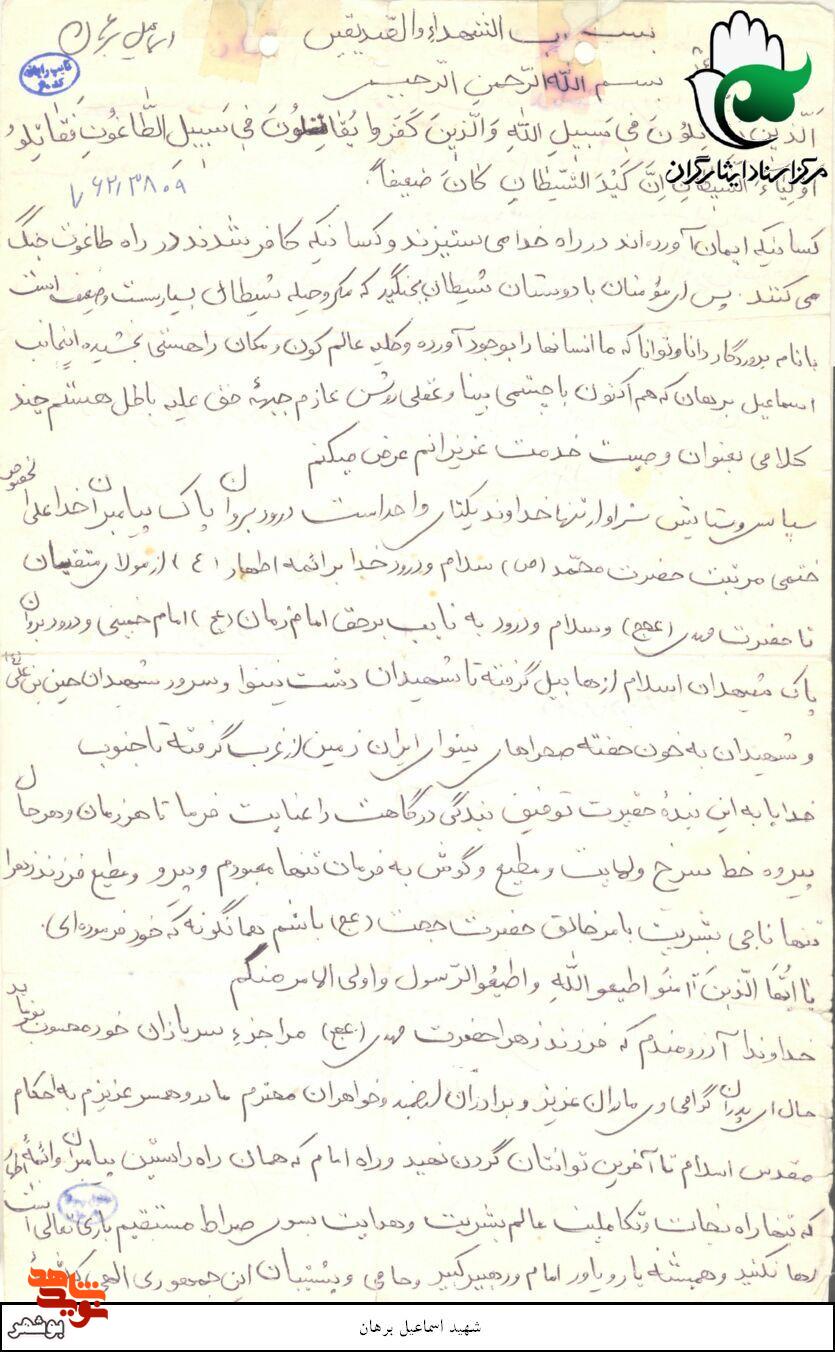 بسم رب الشهداء والصدیقین
اسماعیل برهان
بسم الله الرحمن الرحیم
اَلَّذینَ یُقاتِلُونَ فی سَبیلِ اللهِ وَالَّذینَ کَفَروا یُقاتِلُونَ فی سَبیلِ الطّاغُوتِ فَقاتِلُو
اَولِیاءَ الشَّیطانِ اِنَّ کَیْدَ الشَّیطانِ کانَ ضعیفاً.
مرکز اسناد ایثارگران
کسانیکه ایمان آورده اند در راه خدا می ستیزند و کسانیکه کافر شدند در راه طاغوت جنگ
می کنند. پس ای مؤمنان با دوستان شیطان بجنگید که مکر و حیله شیطان بسیار سست و ضعیف است
بانام پروردگار دانا و توانا که ما انسانها را بوجود آورده و کلیه عالم کون و مکان را هستی بخشیده اینجانب
اسماعیل برهان که هم اکنون با چشمی بینا و عقلی روشن عازم جبهۀ حق علیه باطل هستم چند
کلامی بعنوان وصیت خدمت عزیزانم عرض میکنم
سپاس و ستایش سزاوار تنها خداوند یکتای واحد است درود بروان پاک پیامبران خدا علی الخصوص
ختمی مرتبت حضرت محمّد (ص) سلام و درود خدا بر ائمه اطهار (ع) از مولای متقیان
تا حضرت مهدی (عج) و سلام و درود به نایب برحق امام زمان (عج) امام خمینی و درود بروان
پاک شهیدان اسلام از هابیل گرفته تا شهیدان دشت نینوا و سرور شهیدان حسین بن علی (ع)
و شهیدان به خون خفته صحراهای نینوای ایران زمین از غرب گرفته تا جنوب
خدایا به این بندۀ حقیرت توفیق بندگی درگاهت را عنایت فرما تا هر زمان و هر حال
پیرو خط سرخ ولایت و مطیع و گوش به فرمان تنها معبودم و پیرو و مطیع فرزند زهرا
تنها ناجی بشریت بامر خالق حضرت حجت (عج) باشم همانگونه که خود فرموده ای.
یا ایُّهَا الَّذینَ آمَنو اطیعو اللهِ و اطیعُو الرّسول و اولی الامر منکم
خداوندا آرزومندم که فرزند زهرا حضرت مهدی (عج) مرا جزء سربازان خود محسوب بفرماید
حال ای پدران گرامی و ای مادران عزیز و برادران ارجمند و خواهران محترم مادر و همسر عزیزم به احکام
مقدس اسلام تا آخرین توانتان گردن نهید و راه امام که همان راه راستین پیامبران و ائمۀ اطهار
که تنها راه نجات و تکاملیت عالم بشریت و هدایت بسوی صراط مستقیم باری تعالی است
رها نکنید و همیشه یار و یاور امام و رهبر کبیر و حامی و پشتیبان این جمهوری الهی
نوید شاهد
بوشهر
شهید اسماعیل برهان